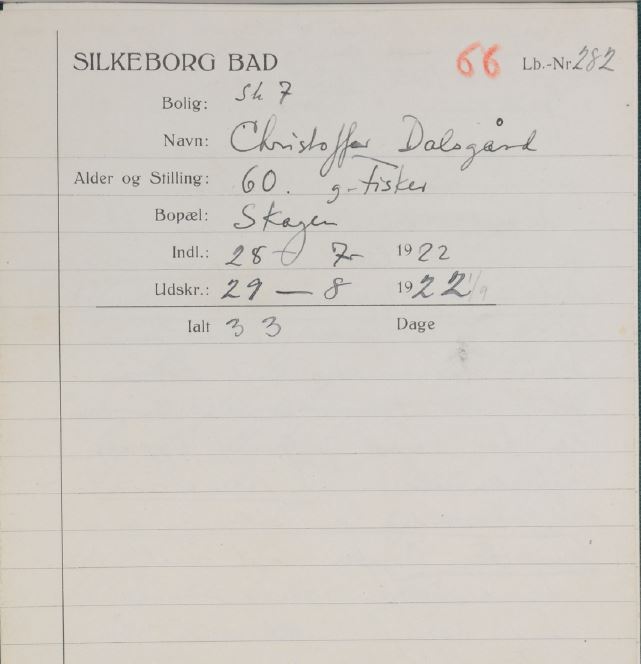 SILKEBORG BAD 66 Lb.-Nr. 282
Bolig: Sh 7
Navn: Christoffer Dalsgård
Alder og Stilling: 60. g-fisker
Bopæl: Skagen
Indl.: 28 - 7- 1922
Udskr.: 29 — 8 1922 1/9
Ialt 33 Dage